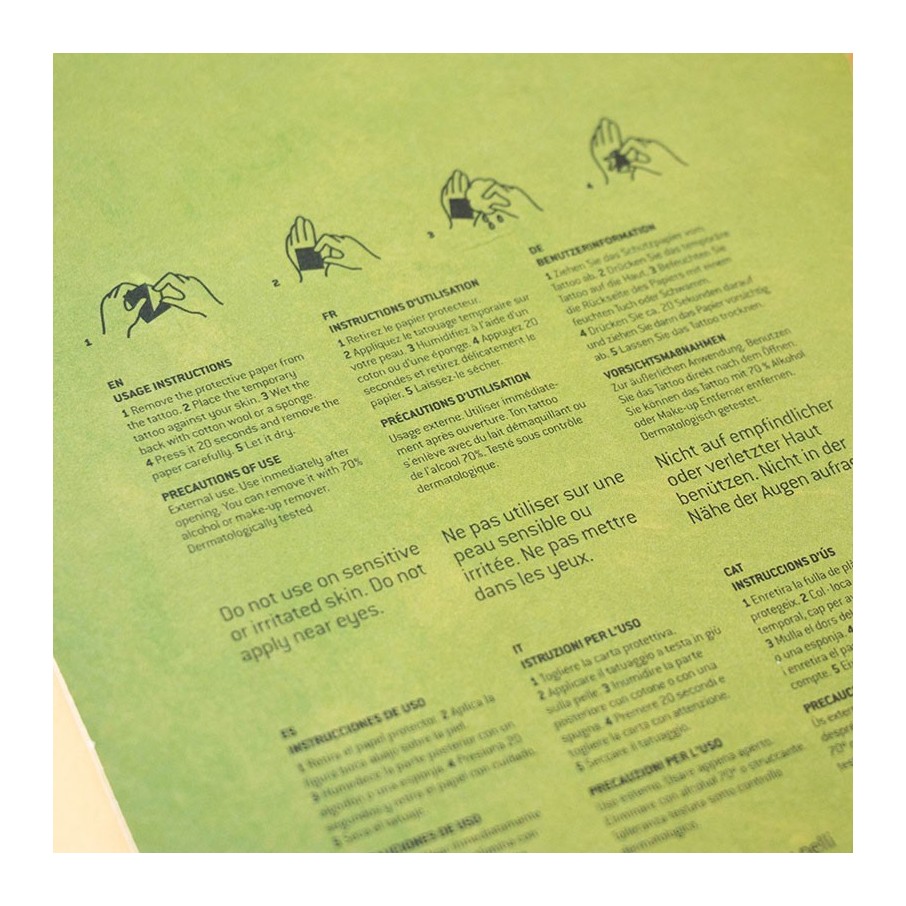 1
2
3
4
EN
USAGE INSTRUCTIONS
1 Remove the protective paper from
the tattoo. 2 Place the temporary
tattoo against your skin. 3 Wet the
back with cotton wool or a sponge.
4 Press it 20 seconds and remove the
paper carefully. 5 Let it dry.
PRECAUTIONS OF USE
External use. Use immediately after
opening. You can remove it with 70%
alcohol or make-up remover.
Dermatologically tested
Do not use on sensitive
or irritated skin. Do not
apply near eyes.
FR
INSTRUCTIONS D'UTILISATION
1 Retirez le papier protecteur.
2 Appliquez le tatouage temporaire sur
votre peau. 3 Humidifiez à l'aide d'un
coton ou d'une éponge. 4 Appuyez 20
secondes et retirez délicatement le
papier. 5 Laissez-le sécher.
PRÉCAUTIONS D'UTILISATION
Usage externe. Utiliser immédiate-
ment après ouverture. Ton tattoo
s'enlève avec du lait démaquillant ou
de l'alcool 70%. Testé sous contrôle
dermatologique.
Ne pas utiliser sur une
peau sensible ou
irritée. Ne pas mettre
dans les yeux.
DE
BENUTZERINFORMATION
1 Ziehen Sie das Schutzpapier vom
Tattoo ab. 2 Drücken Sie das temporäre
Tattoo auf die Haut. 3 Befeuchten Sie
die Rückseite des Papiers mit einem
feuchten Tuch oder Schwamm.
4 Drücken Sie ca. 20 Sekunden darauf
und ziehen Sie dann das Papier vorsichtig
ab. 5 Lassen Sie das Tattoo trocknen.
VORSICHTSMAßNAHMEN
Zur äußerlichen Anwendung. Benutzen
Sie das Tattoo direkt nach dem Öffnen.
Sie können das Tattoo mit 70 % Alkohol
oder Make-up Entferner entfernen.
Dermatologisch getestet.
Nicht auf empfindlicher
oder verletzter Haut
benützen. Nicht in der
Nähe der Augen aufra
ES
INSTRUCCIONES DE USO
1 Retira el papel protector. 2 Aplica la
figura boca abajo sobre la piel.
3 Humedece la parte posterior con un
algodón o una esponja. 4 Presiona 20
segundos y retira el papel con cuidado.
5 Seca el tatuaje.
DE USO
inmediatamente
con
IT
ISTRUZIONI PER L'USO
1 Togliere la carta protettiva.
2 Applicare il tatuaggio a testa in giù
sulla pelle. 3 Inumidire la parte
posteriore con cotone o con una
spugna. 4 Premere 20 secondi e
togliere la carta con attenzione.
5 Seccare il tatuaggio.
PRECAUZIONI PER L'USO
Uso esterno. Usare appena aperto.
Eliminare con alcohol 70° o struccante.
Tolleranza testata sotto controllo
dermatologico.
CAT
INSTRUCCIONS D'ÚS
1 Enretira la fulla de plà
protegeix. 2 Col·loca
temporal, cap per a
3 Mulla el dors del
o una esponja. 4
i enretira el pa
compte. 5 Ei
PRECAUC
Ús exter
despré
70°
tes